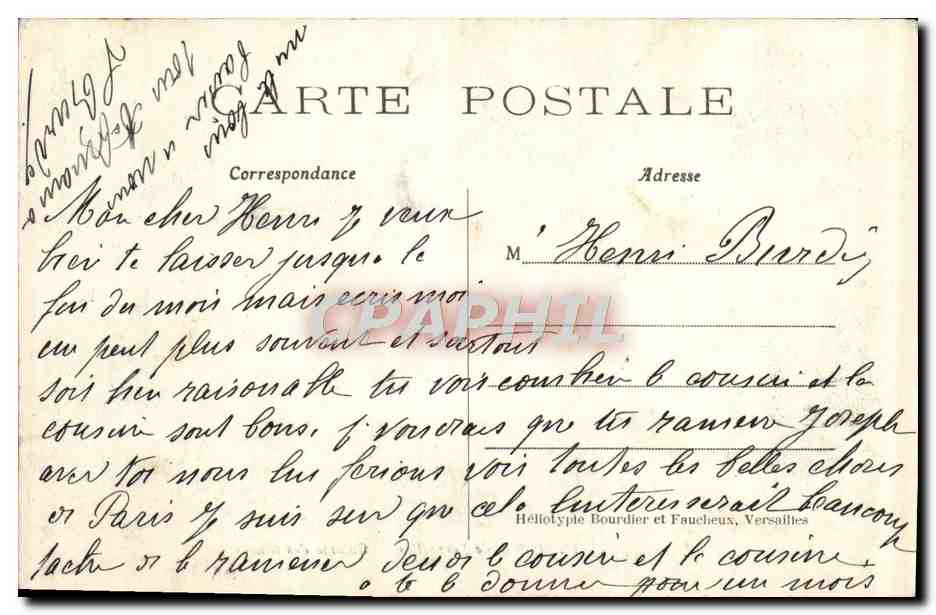 CARTE POSTALE
Correspondance
Adresse
Mon cher Henri je veux
bien te laisser jusque le
fin du mois mais ecris moi
un peut plus souvent et surtout
soit bien raisonable tu vois combien le cousin et la
cousine sont bons. je voudrais que tu ramene Joseph
avec toi nous lui ferions voir toutes les belles choses
de Paris je suis seur que cela linteresserait beaucoup
tache de le ramener deside le cousin et la cousine
a te le donner pour un mois
M Henri Burdy
Héliotypie Bourdier et Faucheux, Versailles
CPAPHIL